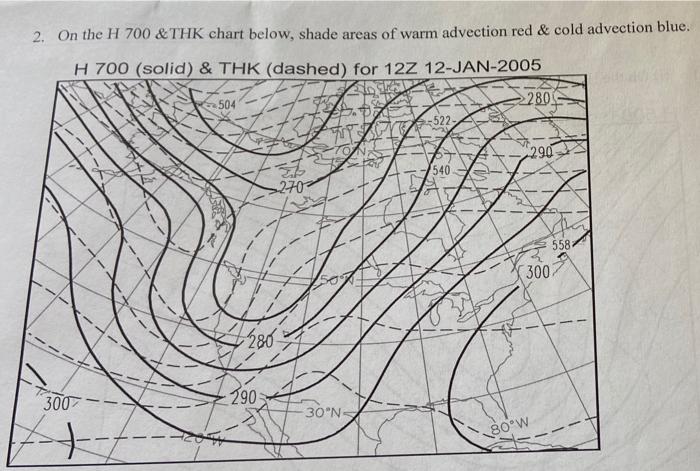 2. On the H 700 &THK chart below, shade areas of warm advection red & cold advection blue.
H 700 (solid) & THK (dashed) for 12Z 12-JAN-2005
504
280
522
290
540
270
558
300
280
290
300
30°N
80°W